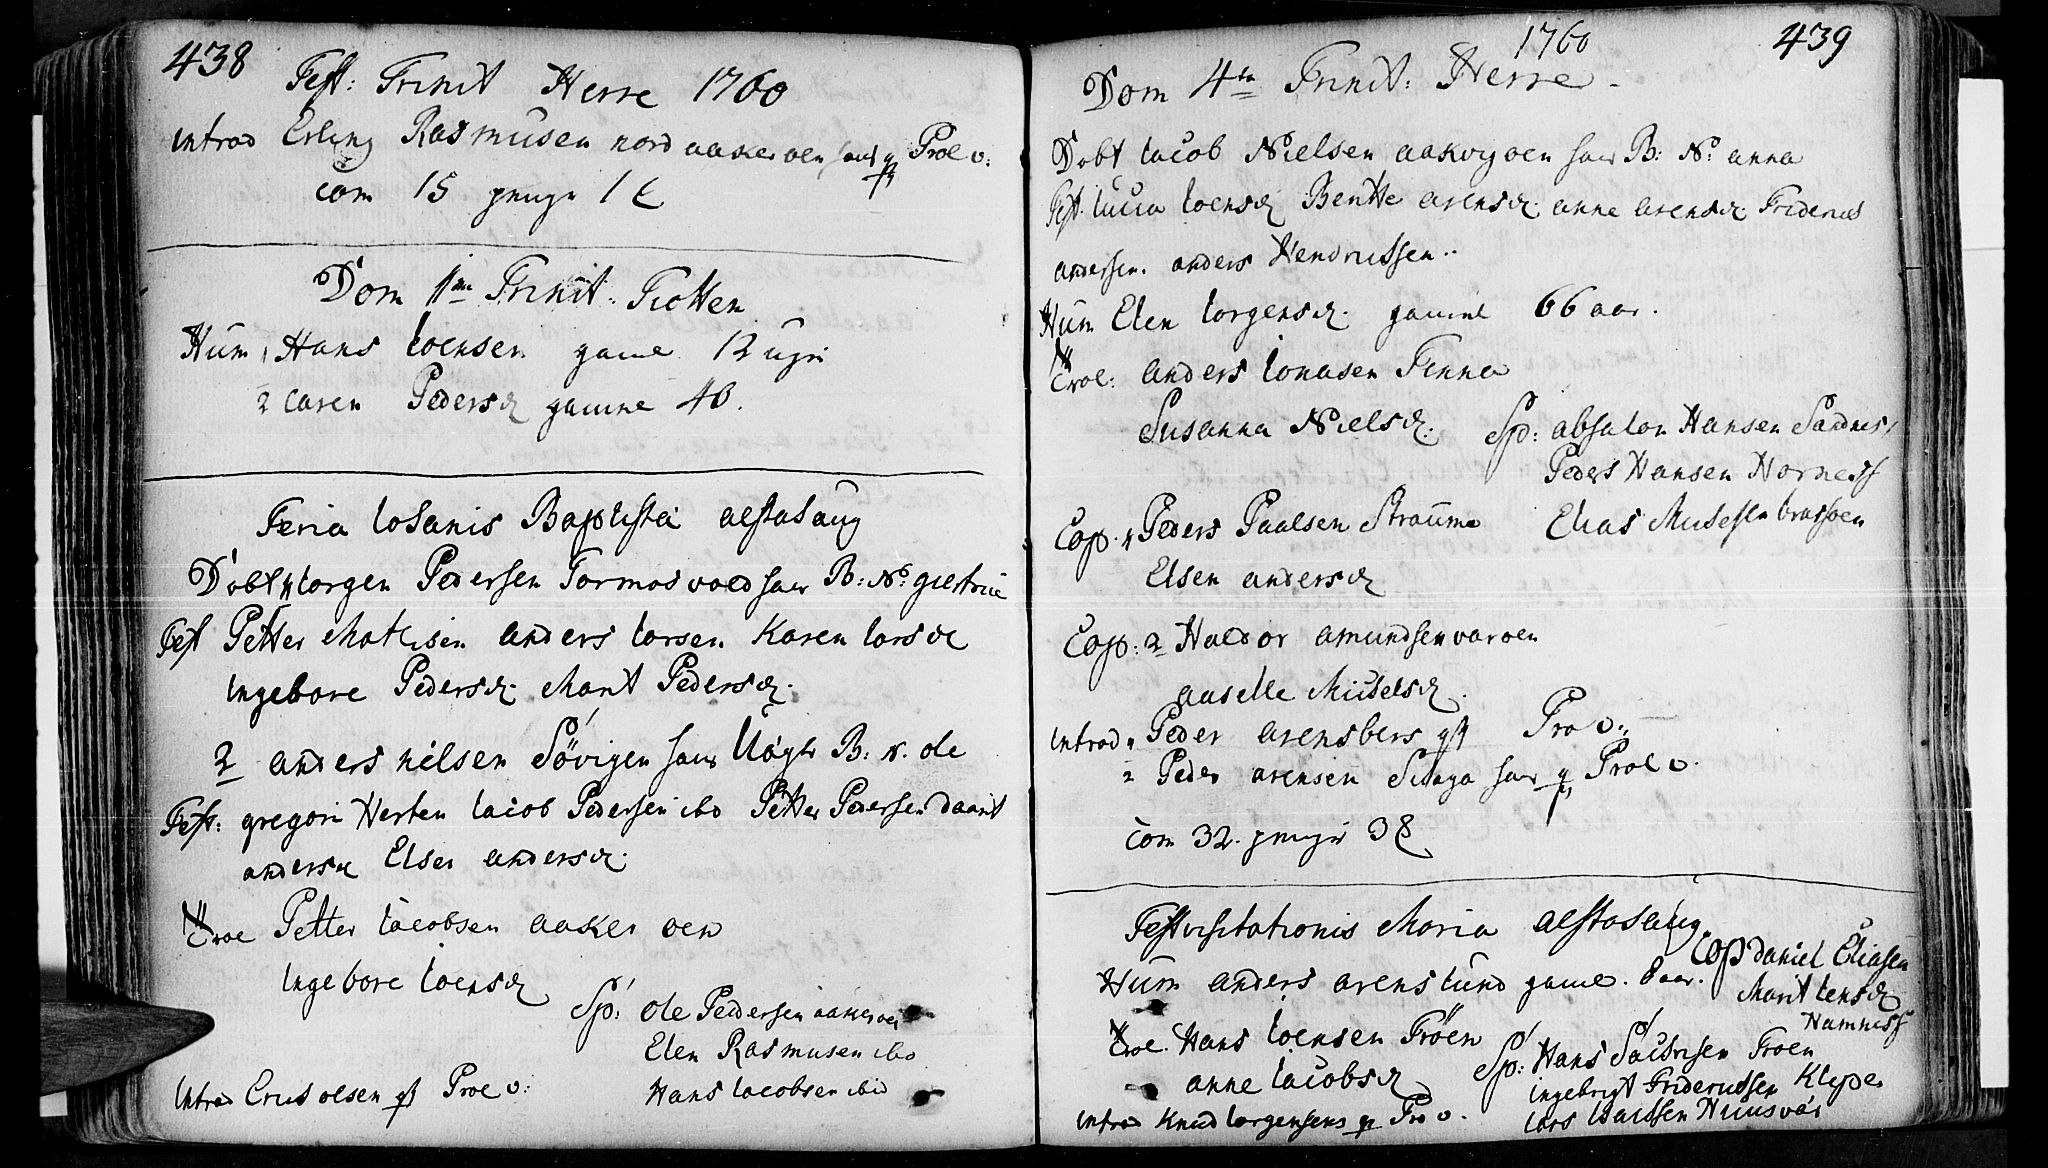 438
Fest: Trinit Herre 1760
introd Erling Rasmusen nord aakeroen Prol v:
Com 15
Dom 1ma Trinit: Tiotten
Hum 1 Hans ioensen gamel 12 ugr
2 Caren Pedersd gamel 40.
Feria iohanis Baptista alstahaug
Dobt iorgen Pedersen Tormosvold B: N:
Test Petter Matisen anders larsen Karen larsd
ingebore Pedersd. Marit Pedersd.
2 anders nilsen Sövigen B: N. ole
Test: gregori Herten iacob Pedersen ibd Petter Pedersen
andersd Elsen andersd.
Trol Petter iacobsen aaker oen
ingebore ioensd
Sp: ole Pedersen aakeroen
Elen Rasmusen ibd
Hans iacobsen ibid
introd olsen Prol v:
439
1760
Dom 4ta Trinit: Herre
Dobt iacob Nielsen aakvigoen B: N: anna
Test. lucia ioensd Bentte arensd. anne arensd Friderics
andersen. anders Hendricssen
Hum Elen iorgensd. gamel 66 aar.
Trol: anders ionasen Finne
Susanna Nielsd.
Sp: absalon Hansen Sandnes
Peders Hansen Horness
Elias Michelsen brasoen
Cop. 1 Peders Paalsen Straume
Elsen andersd
Cop: 2 Haldor amundsen varoen
aaselle Michelsd.
introd 1 Peder arensbers Prol v:
2 Peder arensen Prol v.
Com 32. 38
Fest visitationis Maria alstahaug
Hum anders arens lund gamel. 8 aar.
Cop Daniel Eliasen
Marit iensd
Hamness
Trol. Hans ioensen Fröen
anne iacobsd
Sp: Hans Froen
ingebrigt Fridericssen Klepen
lars
introd Knud iorgensens Pro v.